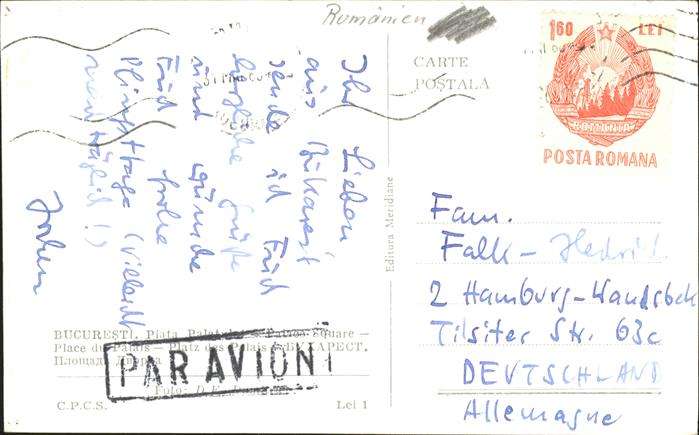 Rumänien
Ihr Lieben
aus Bukarest
sende ich Euch
herzliche Grüße
und wünsche
Euch frohe
Pfingsttage (vielleicht
nachträglich!)
CARTE
POȘTALĂ
1,60 LEI
ROMANIA
POSTA ROMANA
Editura Meridiane
Fam.
Falk -
2 Hamburg-Wandsbek
Tilsiter Str. 63c
DEUTSCHLAND
Allemagne
BUCUREȘTI. Piața Palatului. Palace Square —
Place du Palais — Platz des Palais — БУХАРЕСТ.
Площадь Дворца
PAR AVION
Foto:
C.P.C.S. Lei 1